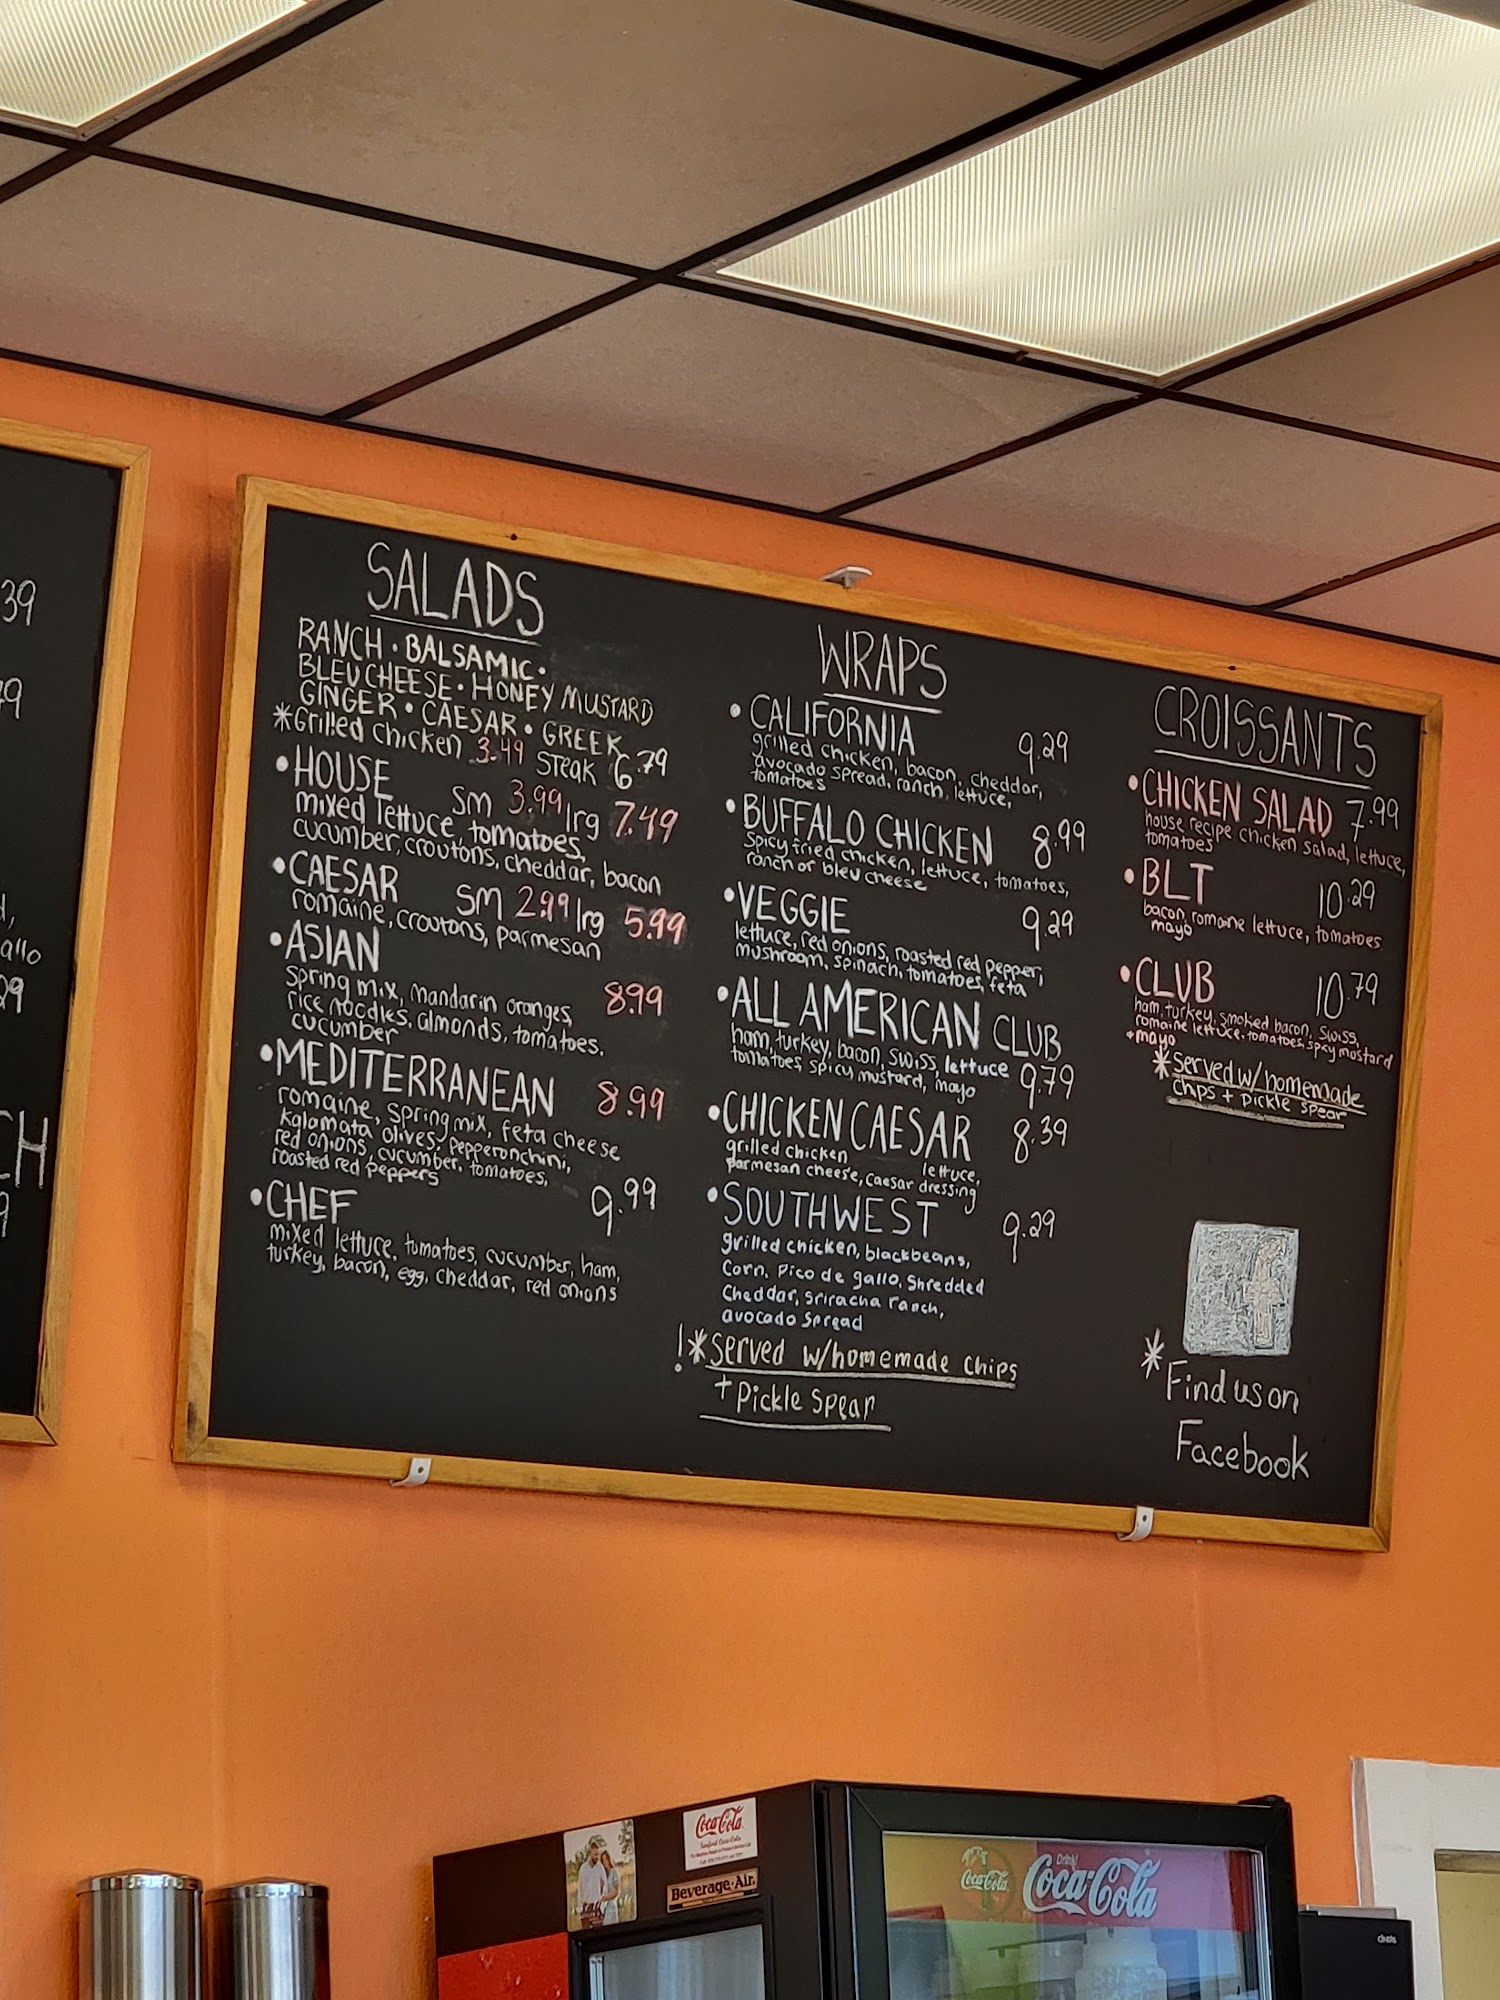 39
9
allo
29
CH
9
SALADS
RANCH · BALSAMIC ·
BLEU CHEESE · HONEY MUSTARD
GINGER · CAESAR · GREEK
*Grilled chicken 3.49 Steak 6.79
• HOUSE sm 3.99 lrg 7.49
mixed lettuce, tomatoes,
cucumber, croutons, cheddar, bacon
• CAESAR sm 2.99 lrg 5.99
romaine, croutons, parmesan
• ASIAN
spring mix, mandarin oranges, 8.99
rice noodles, almonds, tomatoes,
cucumber
• MEDITERRANEAN 8.99
romaine, spring mix, feta cheese
kalamata olives, pepperonchini,
red onions, cucumber, tomatoes,
roasted red peppers
• CHEF 9.99
mixed lettuce, tomatoes, cucumber, ham,
turkey, bacon, egg, cheddar, red onions
WRAPS
• CALIFORNIA 9.29
grilled chicken, bacon, cheddar,
avocado spread, ranch, lettuce,
tomatoes
• BUFFALO CHICKEN 8.99
spicy fried chicken, lettuce, tomatoes,
ranch or bleu cheese
• VEGGIE 9.29
lettuce, red onions, roasted red pepper,
mushroom, spinach, tomatoes, feta
• ALL AMERICAN CLUB
ham, turkey, bacon, swiss, lettuce 9.79
tomatoes, spicy mustard, mayo
• CHICKEN CAESAR 8.39
grilled chicken lettuce,
parmesan cheese, caesar dressing
• SOUTHWEST 9.29
grilled chicken, blackbeans,
Corn, Pico de gallo, Shredded
Cheddar, Sriracha ranch,
avocado Spread
!*Served w/homemade chips
+ Pickle Spear
CROISSANTS
• CHICKEN SALAD 7.99
house recipe chicken salad, lettuce,
tomatoes
• BLT 10.29
bacon, romaine lettuce, tomatoes
mayo
• CLUB 10.79
ham, turkey, smoked bacon, swiss,
romaine lettuce, tomatoes, spicy mustard
+ mayo
*served w/homemade
chips + pickle spear
f
*Find us on
Facebook
Coca-Cola
Sanford Coca-Cola
Beverage-Air
Coca-Cola
Drink
Coca-Cola